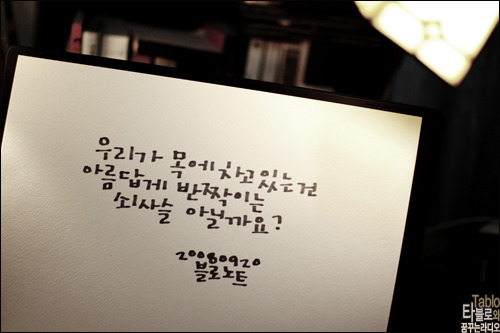 우리가 목에 차고 있는건
아름답게 반짝이는
쇠사슬 아닐까요?
20080920
블로노트
Tablo
타블로와
꿈꾸는라디오